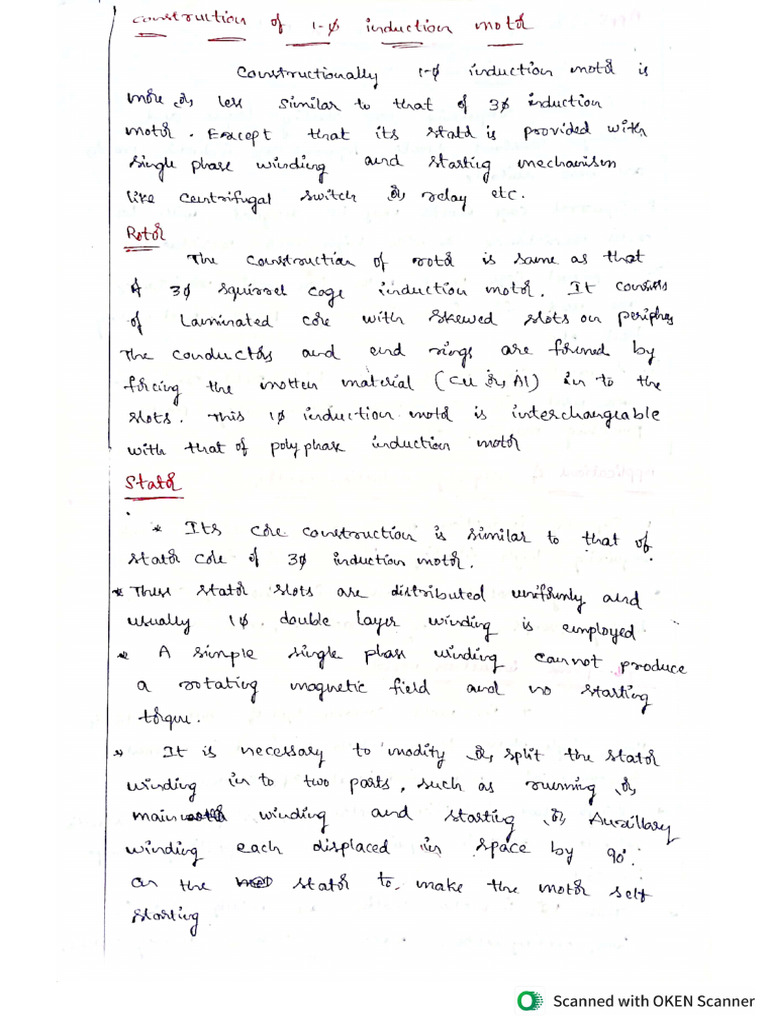 Construction of 1-ϕ induction motor
Constructionally 1-ϕ induction motor is
more or less similar to that of 3ϕ induction
motor. Except that its stator is provided with
single phase winding and starting mechanism
like centrifugal switch or relay etc.
Rotor
The construction of rotor is same as that
of 3ϕ squirrel cage induction motor. It consists
of Laminated core with skewed slots on periphey
The conductors and end rings are formed by
forcing the motten material (Cu or Al) in to the
slots. This 1ϕ induction motor is interchangeable
with that of polyphase induction motor
Stator
* Its core construction is similar to that of
stator core of 3ϕ induction motor.
* These stator slots are distributed uniformly and
usually 1ϕ double layer winding is employed.
* A simple single phase winding cannot produce
a rotating magnetic field and no starting
torque.
* It is necessary to modify or split the stator
winding in to two parts, such as running or
main winding and starting or Auxillary
winding each displaced in space by 90°.
on the stator to make the motor self
starting
Scanned with OKEN Scanner